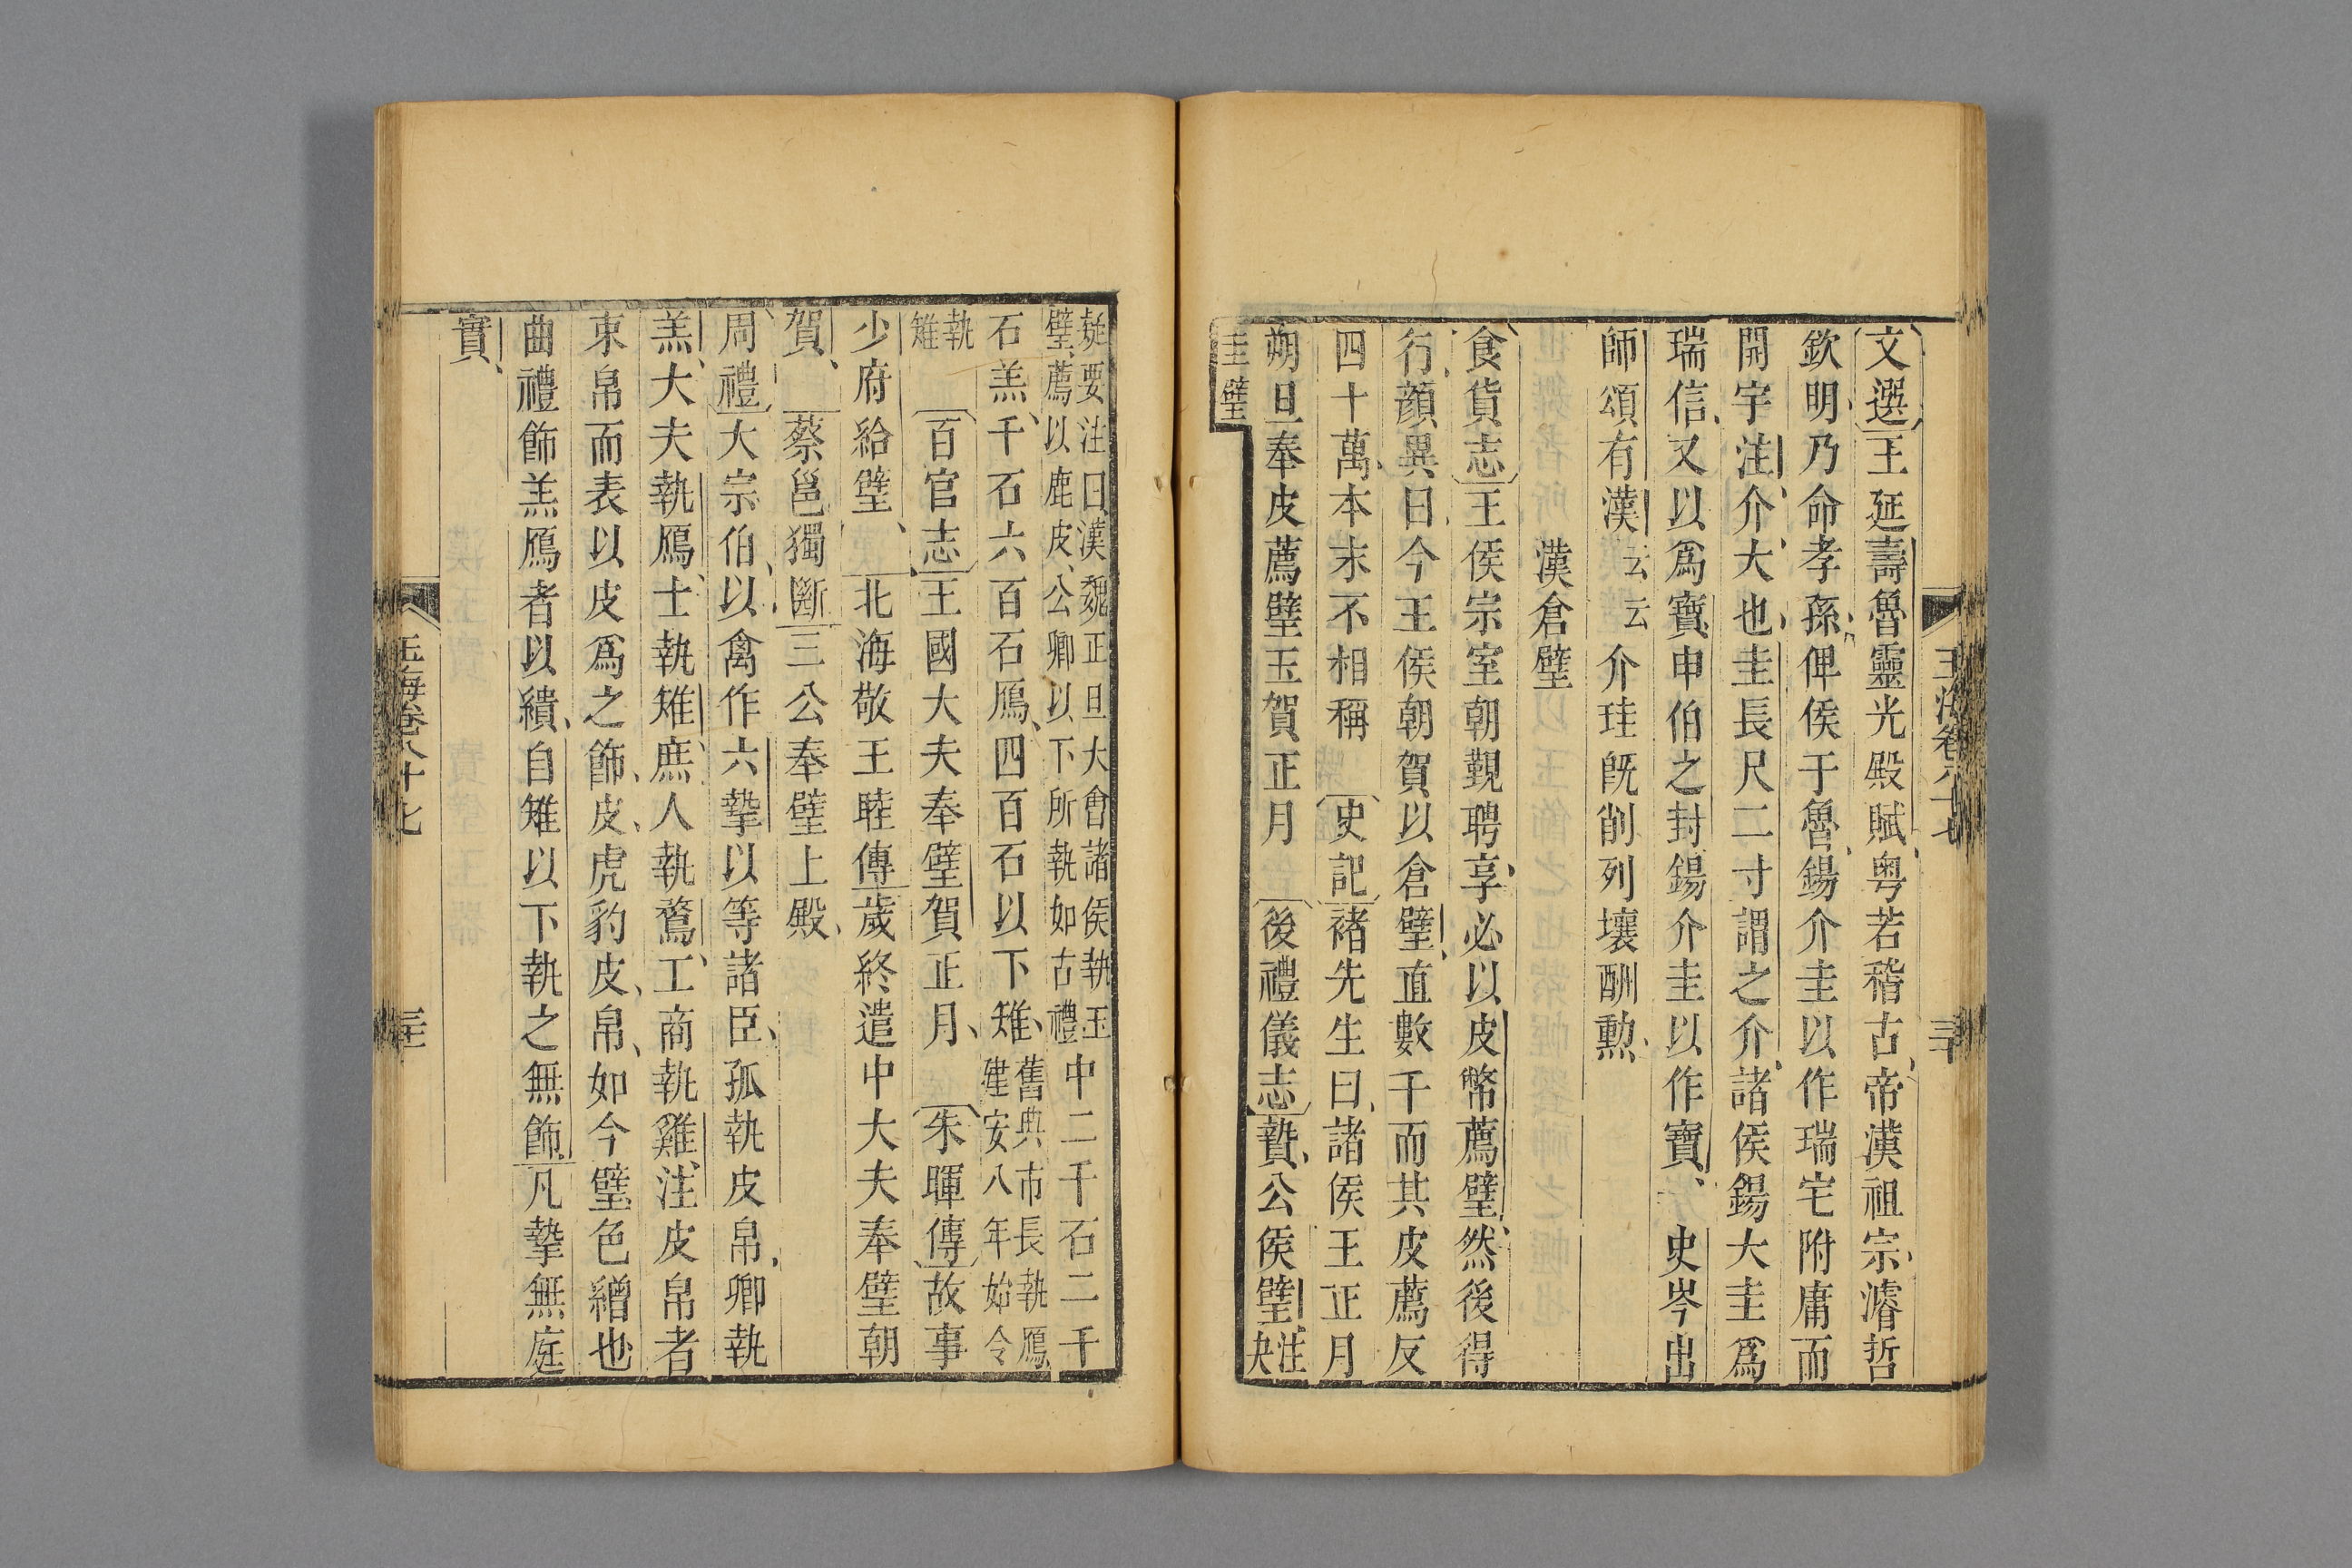 玉海卷八十七 三十
文選王延壽魯靈光殿賦粤若稽古帝漢祖宗濬哲
欽明乃命孝孫俾侯于魯錫介圭以作瑞宅附庸而
開宇注介大也圭長尺二寸謂之介諸侯錫大圭爲
瑞信又以爲寶申伯之封錫介圭以作寶 史岑出
師頌有漢云云介珪旣削列壤酬勲
漢倉璧
食貨志王侯宗室朝覲聘享必以皮幣薦璧然後得
行顔異曰今王侯朝賀以倉璧直數千而其皮薦反
四十萬本末不相稱 史記褚先生曰諸侯王正月
朔旦奉皮薦璧玉賀正月 後禮儀志贄公侯璧注決
圭璧
疑要注曰漢魏正旦大會諸侯執玉
璧薦以鹿皮公卿以下所執如古禮
中二千石二千
石羔千石六百石鴈四百石以下雉
舊典市長執鴈
建安八年始令
執
雉
百官志王國大夫奉璧賀正月 朱暉傳故事
少府給璧 北海敬王睦傳歲終遣中大夫奉璧朝
賀 蔡邕獨斷三公奉璧上殿
周禮大宗伯以禽作六摯以等諸臣孤執皮帛卿執
羔大夫執鴈士執雉庶人執鶩工商執雞注皮帛者
束帛而表以皮爲之飾皮虎豹皮帛如今璧色繒也
曲禮飾羔鴈者以繢自雉以下執之無飾凡摯無庭
實
玉海卷八十七 三十一